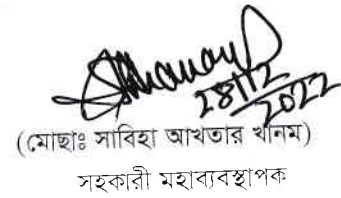 28/12/2022
(মোছাঃ সাবিহা আখতার খানম)
সহকারী মহাব্যবস্থাপক